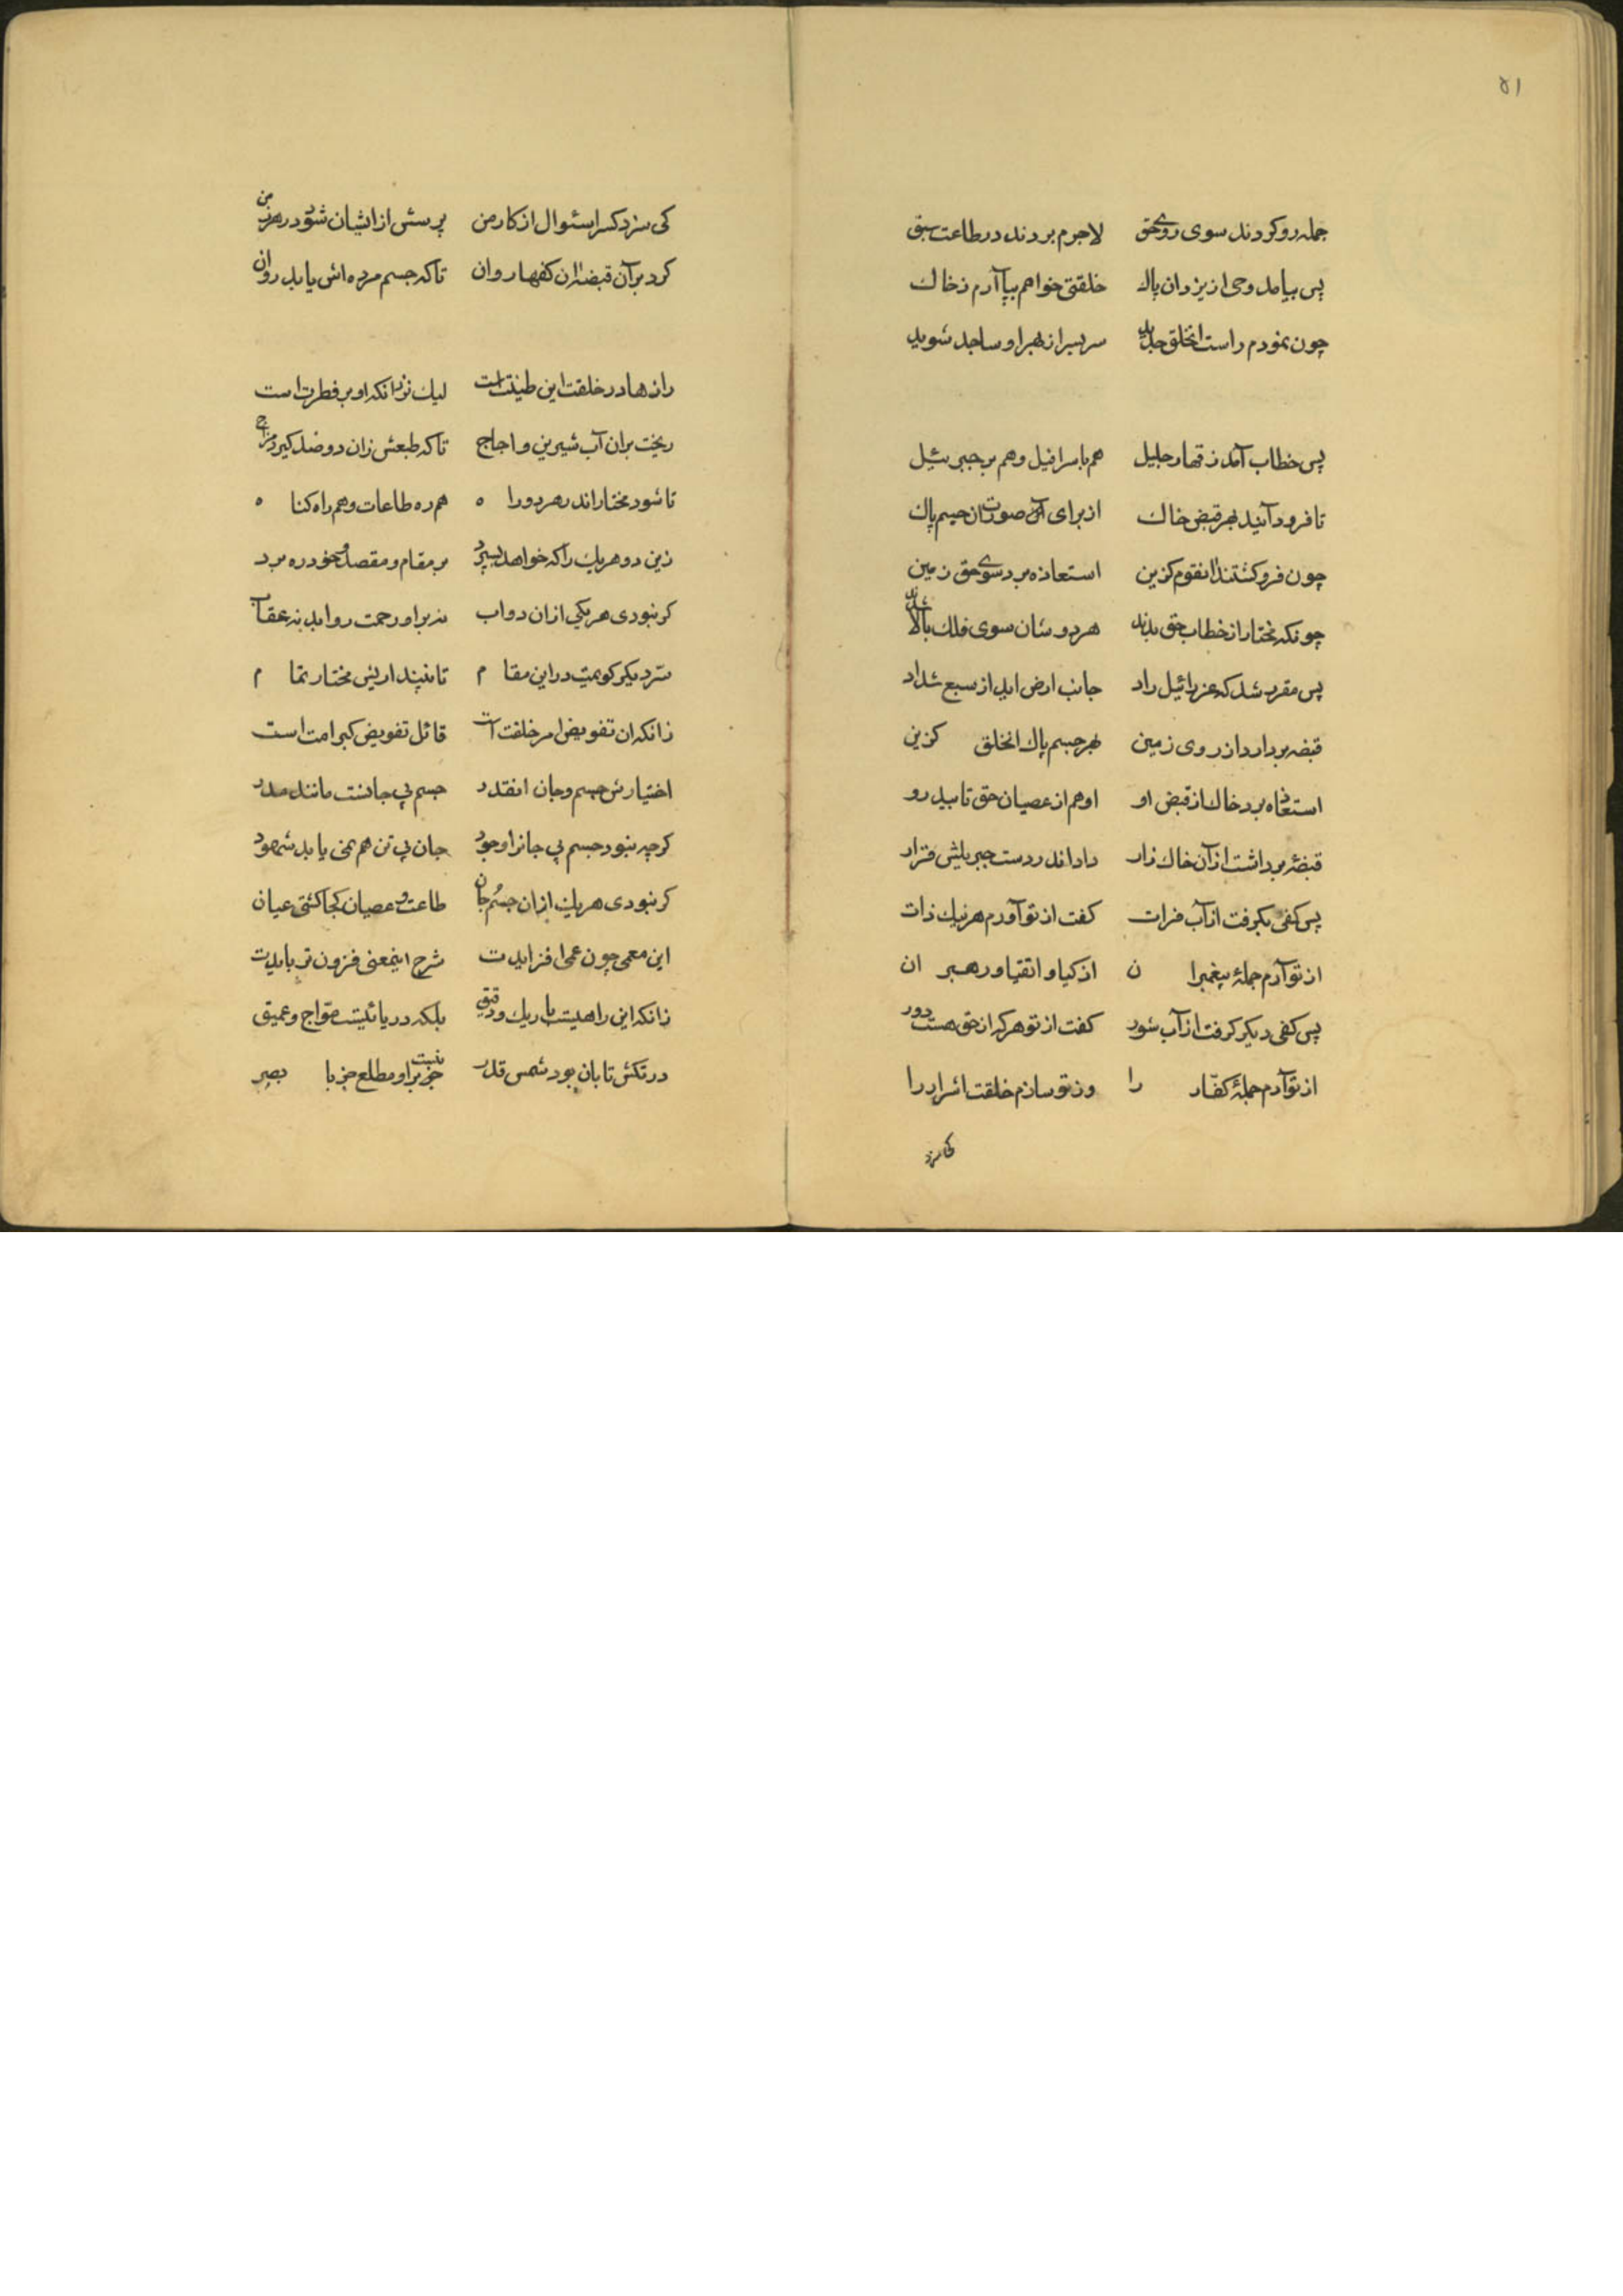 ۵۱
جمله رو کردند سوی روی حق لاجرم بردند در طاعت سبق
پس بیامد وحی از یزدان پاک خلقتی خواهم بپا آرم ز خاک
چون نمودم راست انخلق جدید سربسر از بهر او ساجد شوید
پس خطاب آمد ز قهار جلیل هم باسرافیل و هم بر جبرئیل
تا فرود آئید بهر قبض خاک از برای آن صورت ان جسم پاک
چون فرو کشتند انقوم کزین استعاذه برد سوی حق زمین
چونکه مختار از خطاب حق بدند هر دوشان سوی فلک بالا شدند
پس مقرر شد که عزرائیل راد جانب ارض اید از سبع شداد
قبضه بردارد از روی زمین بهر جسم پاک انخلق کزین
استعاذه برد خاک از قبض او او هم از عصیان حق تابید رو
قبضهٔ برداشت از آن خاک زار داد اندر دست جبریلش قرار
پس کفی بکرفت از آب فرات کفت از تو آورم هر نیک ذات
از تو آرم جملهٔ پیغمبرا ن ازکیا و اتقیا و رهبر ان
پس کفی دیکر کرفت از آب شور کفت از تو هر که از حق هست دور
از تو آرم جملهٔ کفّار را وز تو سازم خلقت اشرار را
کی سزد
کی سزد کسرا سئوال از کار من پرسش از ایشان شود در هر زمن
کرد بر آن قبضه ان کفها روان تا که جسم مرده اش یابد روان
رازها در خلقت این طینت است لیک نز انکه او بر فطرت است
ریخت بر ان آب شیرین و اجاج تا که طبعش زان دو ضد کیرد مزاج
تا شود مختار اندر هر دو را ه هم ره طاعات و هم راه کنا ه
زین دو هر یک را که خواهد بسپرد بر مقام و مقصد خود ره برد
کر نبودی هر یکی از ان دو آب نه بر او رحمت روا بد نه عقاب
سرّ دیکر کویمت در این مقا م تا نپنداریش مختار تما م
زانکه ان تفویض امر خلقت است قائل تفویض کبر امت است
اختیارش جسم و جان انقدر جسم بی جانست مانند مدر
کرچه نبود جسم بی جانرا وجود جان بی تن هم نمی یابد شهود
کر نبودی هر یک از ان جسم و جان طاعت و عصیان کجا کشتی عیان
این معمی چون عمی افزاید ت شرح اینمعنی فزون تر بایدت
زانکه این راهیست باریک و دقیق بلکه دریائیست موّاج و عمیق
در تکش تابان بود شمس قدر نیست جز بر او مطلع جز با بصر